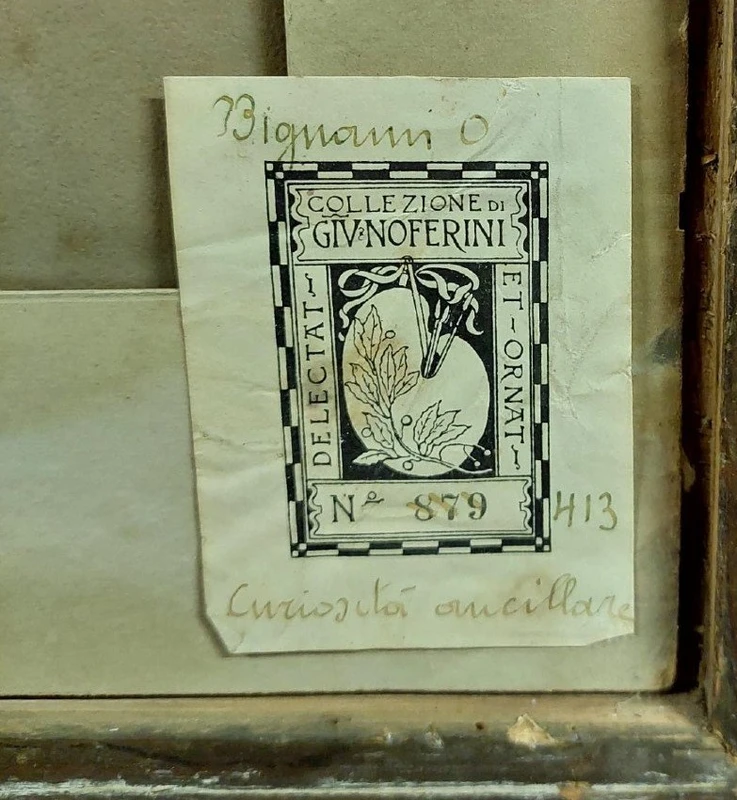 Bignami O
COLLEZIONE DI
GIUᴱ NOFERINI
DELECTAT
ET-ORNAT
Nº 879
413
Curiosità ancillare